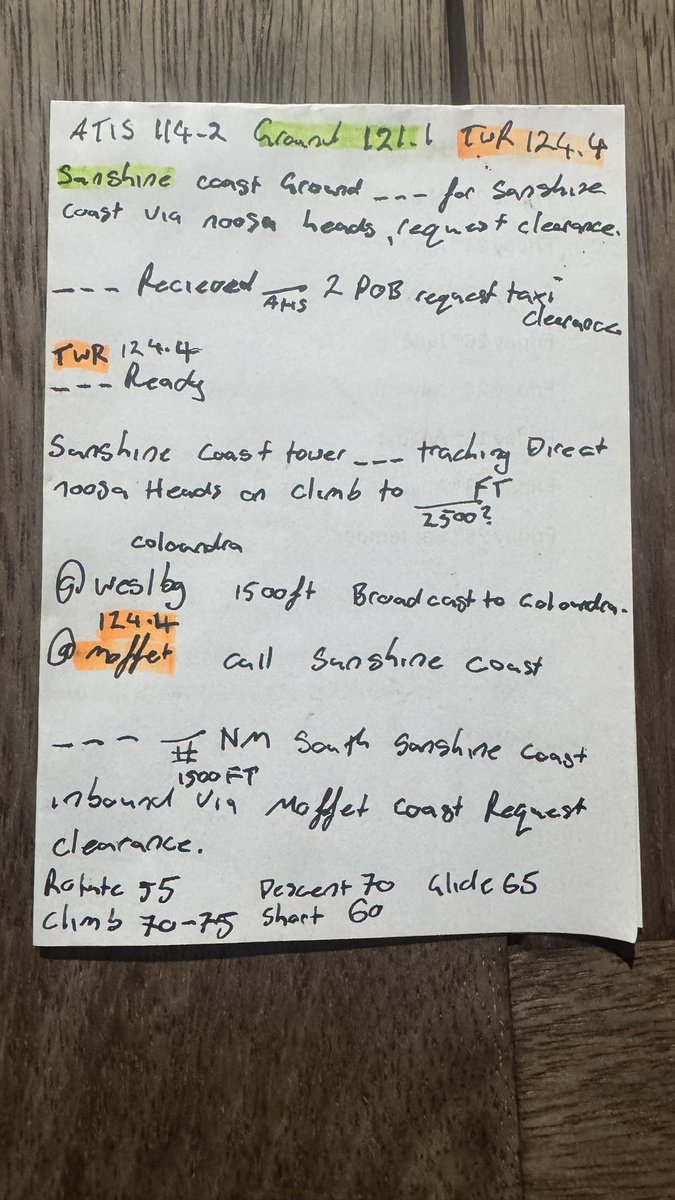 ATIS 114-2 Ground 121.1 TWR 124.4
Sunshine coast Ground --- for sunshine
coast via noosa heads, request clearance.
--- Recieved ATIS 2 POB request taxi
clearance
TWR 124.4
--- Ready
Sunshine coast tower --- tracking Direct
noosa Heads on climb to ___ FT
2500?
coloundra
@ 1500ft Broadcast to coloundra.
124.4
@ moffet call Sunshine coast
--- # NM South Sunshine coast
1500FT
inbound via moffet coast Request
clearance.
Rotate 55 Descent 70 Glide 65
Climb 70-75 Short 60